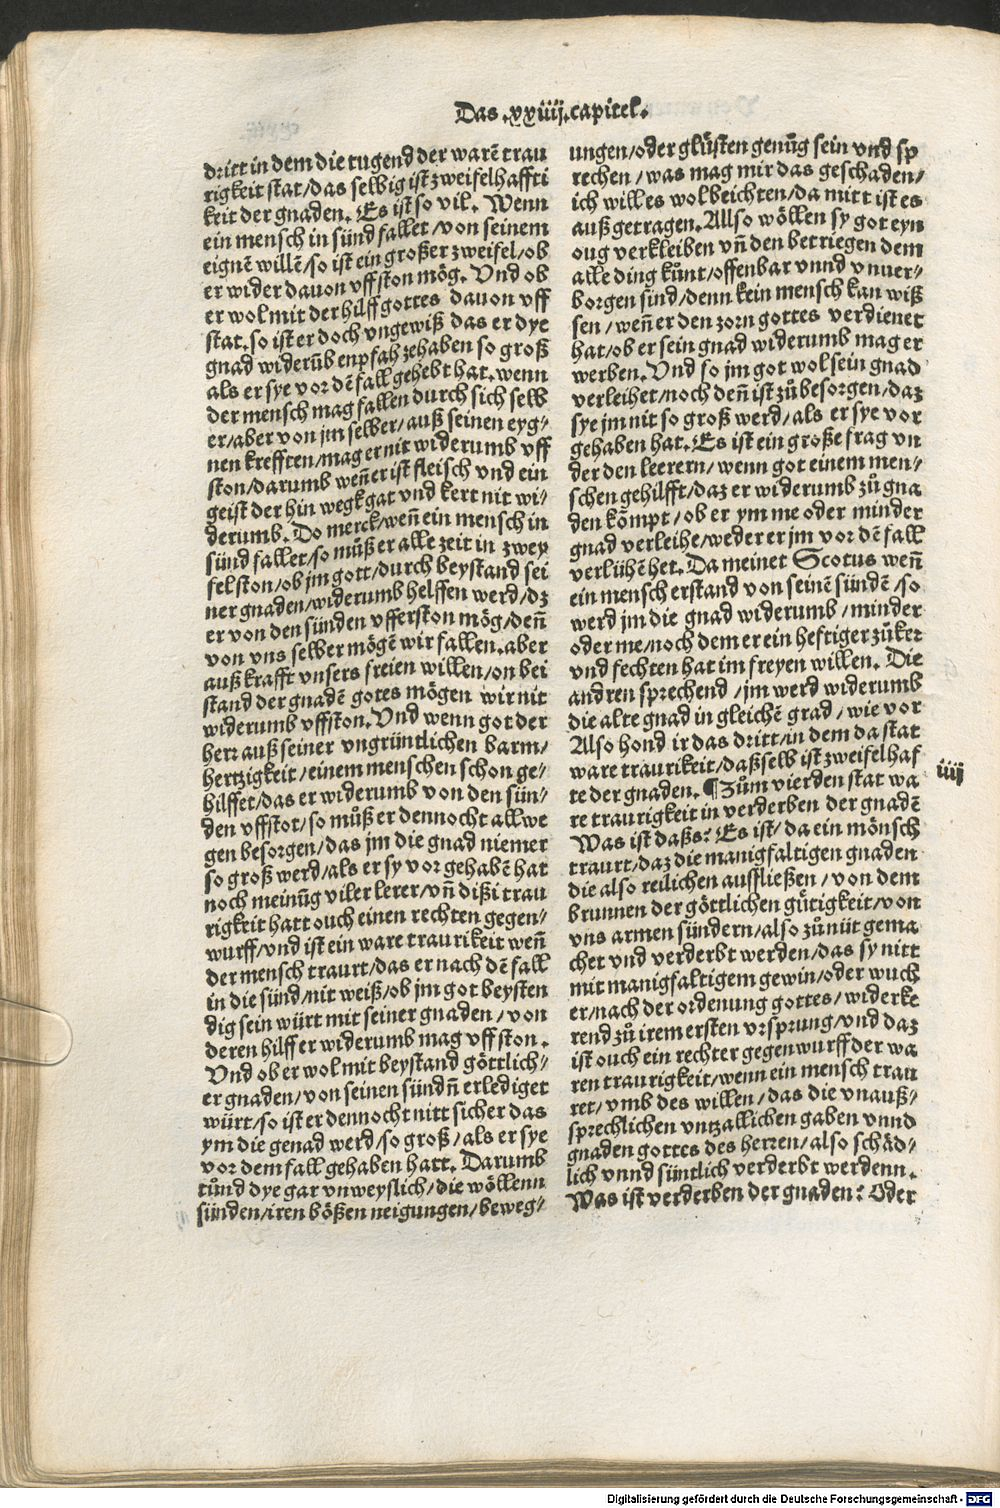 Das .xxiiij. capitel.
dritt in dem die tugend der warē trau
rigkeit stat/das selbig ist zweifelhaffti
keit der gnaden. Es ist so vil. Wenn
ein mensch in sünd fallet/von seinem
eignē willē/so ist ein großer zweifel/ob
er wider dauon vffston mög. Vnd ob
er wol mit der hilff gottes dauon vff
stat. so ist er doch vngewiß das er dye
gnad widerūb enpfah zehaben so groß
als er sye vor dē fall gehebt hat. wenn
der mensch mag fallen durch sich selb
er/aber von jm selber/auß seinen eyg-
nen krefften/mag er nit widerumb vff
ston/darumb weñ er ist fleisch vnd ein
geist der hin wegk gat vnd kert nit wi-
derumb. Do merck/weñ ein mensch in
sünd fallet/so můß er alle zeit in zwey
fel ston/ob jm gott/durch beystand sei
ner gnaden/widerumb helffen werd/dz
er von den sünden vfferston mög/deñ
von vns selber mögē wir fallen. aber
auß krafft vnsers freien willen/on bei
stand der gnadē gotes mögen wir nit
widerumb vffston. Vnd wenn got der
herr auß seiner vngrüntlichen barm/
hertzigkeit/einem menschen schon ge-
hilffet/das er widerumb von den sün-
den vffstot/so můß er dennocht allwe
gen besorgen/das jm die gnad niemer
so groß werd/als er sy vor gehabē hat
noch meinūg viler lerer/vñ dißi trau
rigkeit hatt ouch einen rechten gegen/
wurff/vnd ist ein ware traurikeit weñ
der mensch traurt/das er nach dē fall
in die sünd/nit weiß/ob jm got beysten
dig sein würt mit seiner gnaden/von
deren hilff er widerumb mag vffston.
Vnd ob er wol mit beystand göttlich-
er gnaden/von seinen sündñ erlediget
würt/so ist er dennocht nitt sicher das
ym die genad werd/so groß/als er sye
vor dem fall gehaben hatt. Darumb
tůnd dye gar vnweyslich/die wöllenn
sünden/iren bößen neigungen/beweg-
ungen/oder glüsten genůg sein vnd sp
rechen/was mag mir das geschaden/
ich will es wol beichten/da mitt ist es
auß getragen. Allso wöllen sy got eyn
oug verkleiben vñ den betriegen dem
alle ding kūnt/offenbar vnnd vnuer-
borgen sind/denn kein mensch kan wiß
sen/weñ er den zorn gottes verdienet
hat/ob er sein gnad widerumb mag er
werben. Vnd so jm got wol sein gnad
verleihet/noch deñ ist zůbesorgen/daz
sye jm nit so groß werd/als er sye vor
gehaben hat. Es ist ein große frag vn
der den leerern/wenn got einem men-
schen gehilfft/daz er widerumb zů gna
den kōmpt/ob er ym me oder minder
gnad verleihe/weder er jm vor dē fall
verlühē het. Da meinet Scotus weñ
ein mensch erstand von seinē sündē/so
werd jm die gnad widerumb/minder
oder me/noch dem er ein heftiger zůker
vnd fechten hat im freyen willen. Die
andren sprechend/jm werd widerumb
die alte gnad in gleichē grad/wie vor
Also hond ir das dritt/in dem da stat
ware traurikeit/daßselb ist zweifelhaf
te der gnaden. ¶Zům vierden stat wa
iiij
re traurigkeit in verderben der gnadē
Was ist daßs? Es ist/da ein mönsch
traurt/daz die manigfaltigen gnaden
die also reilichen ausfließen/von dem
brunnen der göttlichen gütigkeit/von
vns armen sündern/also zů nüt gema
chet vnd verderbt werden/das sy nitt
mit manigfaltigem gewin/oder wuch
er/nach der ordenung gottes/widerke
rend zů irem ersten vrsprung/vnd daz
ist ouch ein rechter gegenwurff der wa
ren traurigkeit/wenn ein mensch trau
ret/vmb des willen/das die vnauß/
sprechlichen vntzallichen gaben vnnd
gnaden gottes des herren/also schäd-
lich vnnd süntlich verderbt werdenn.
Was ist verderben der gnaden? Oder
Digitalisierung gefördert durch die Deutsche Forschungsgemeinschaft - DFG